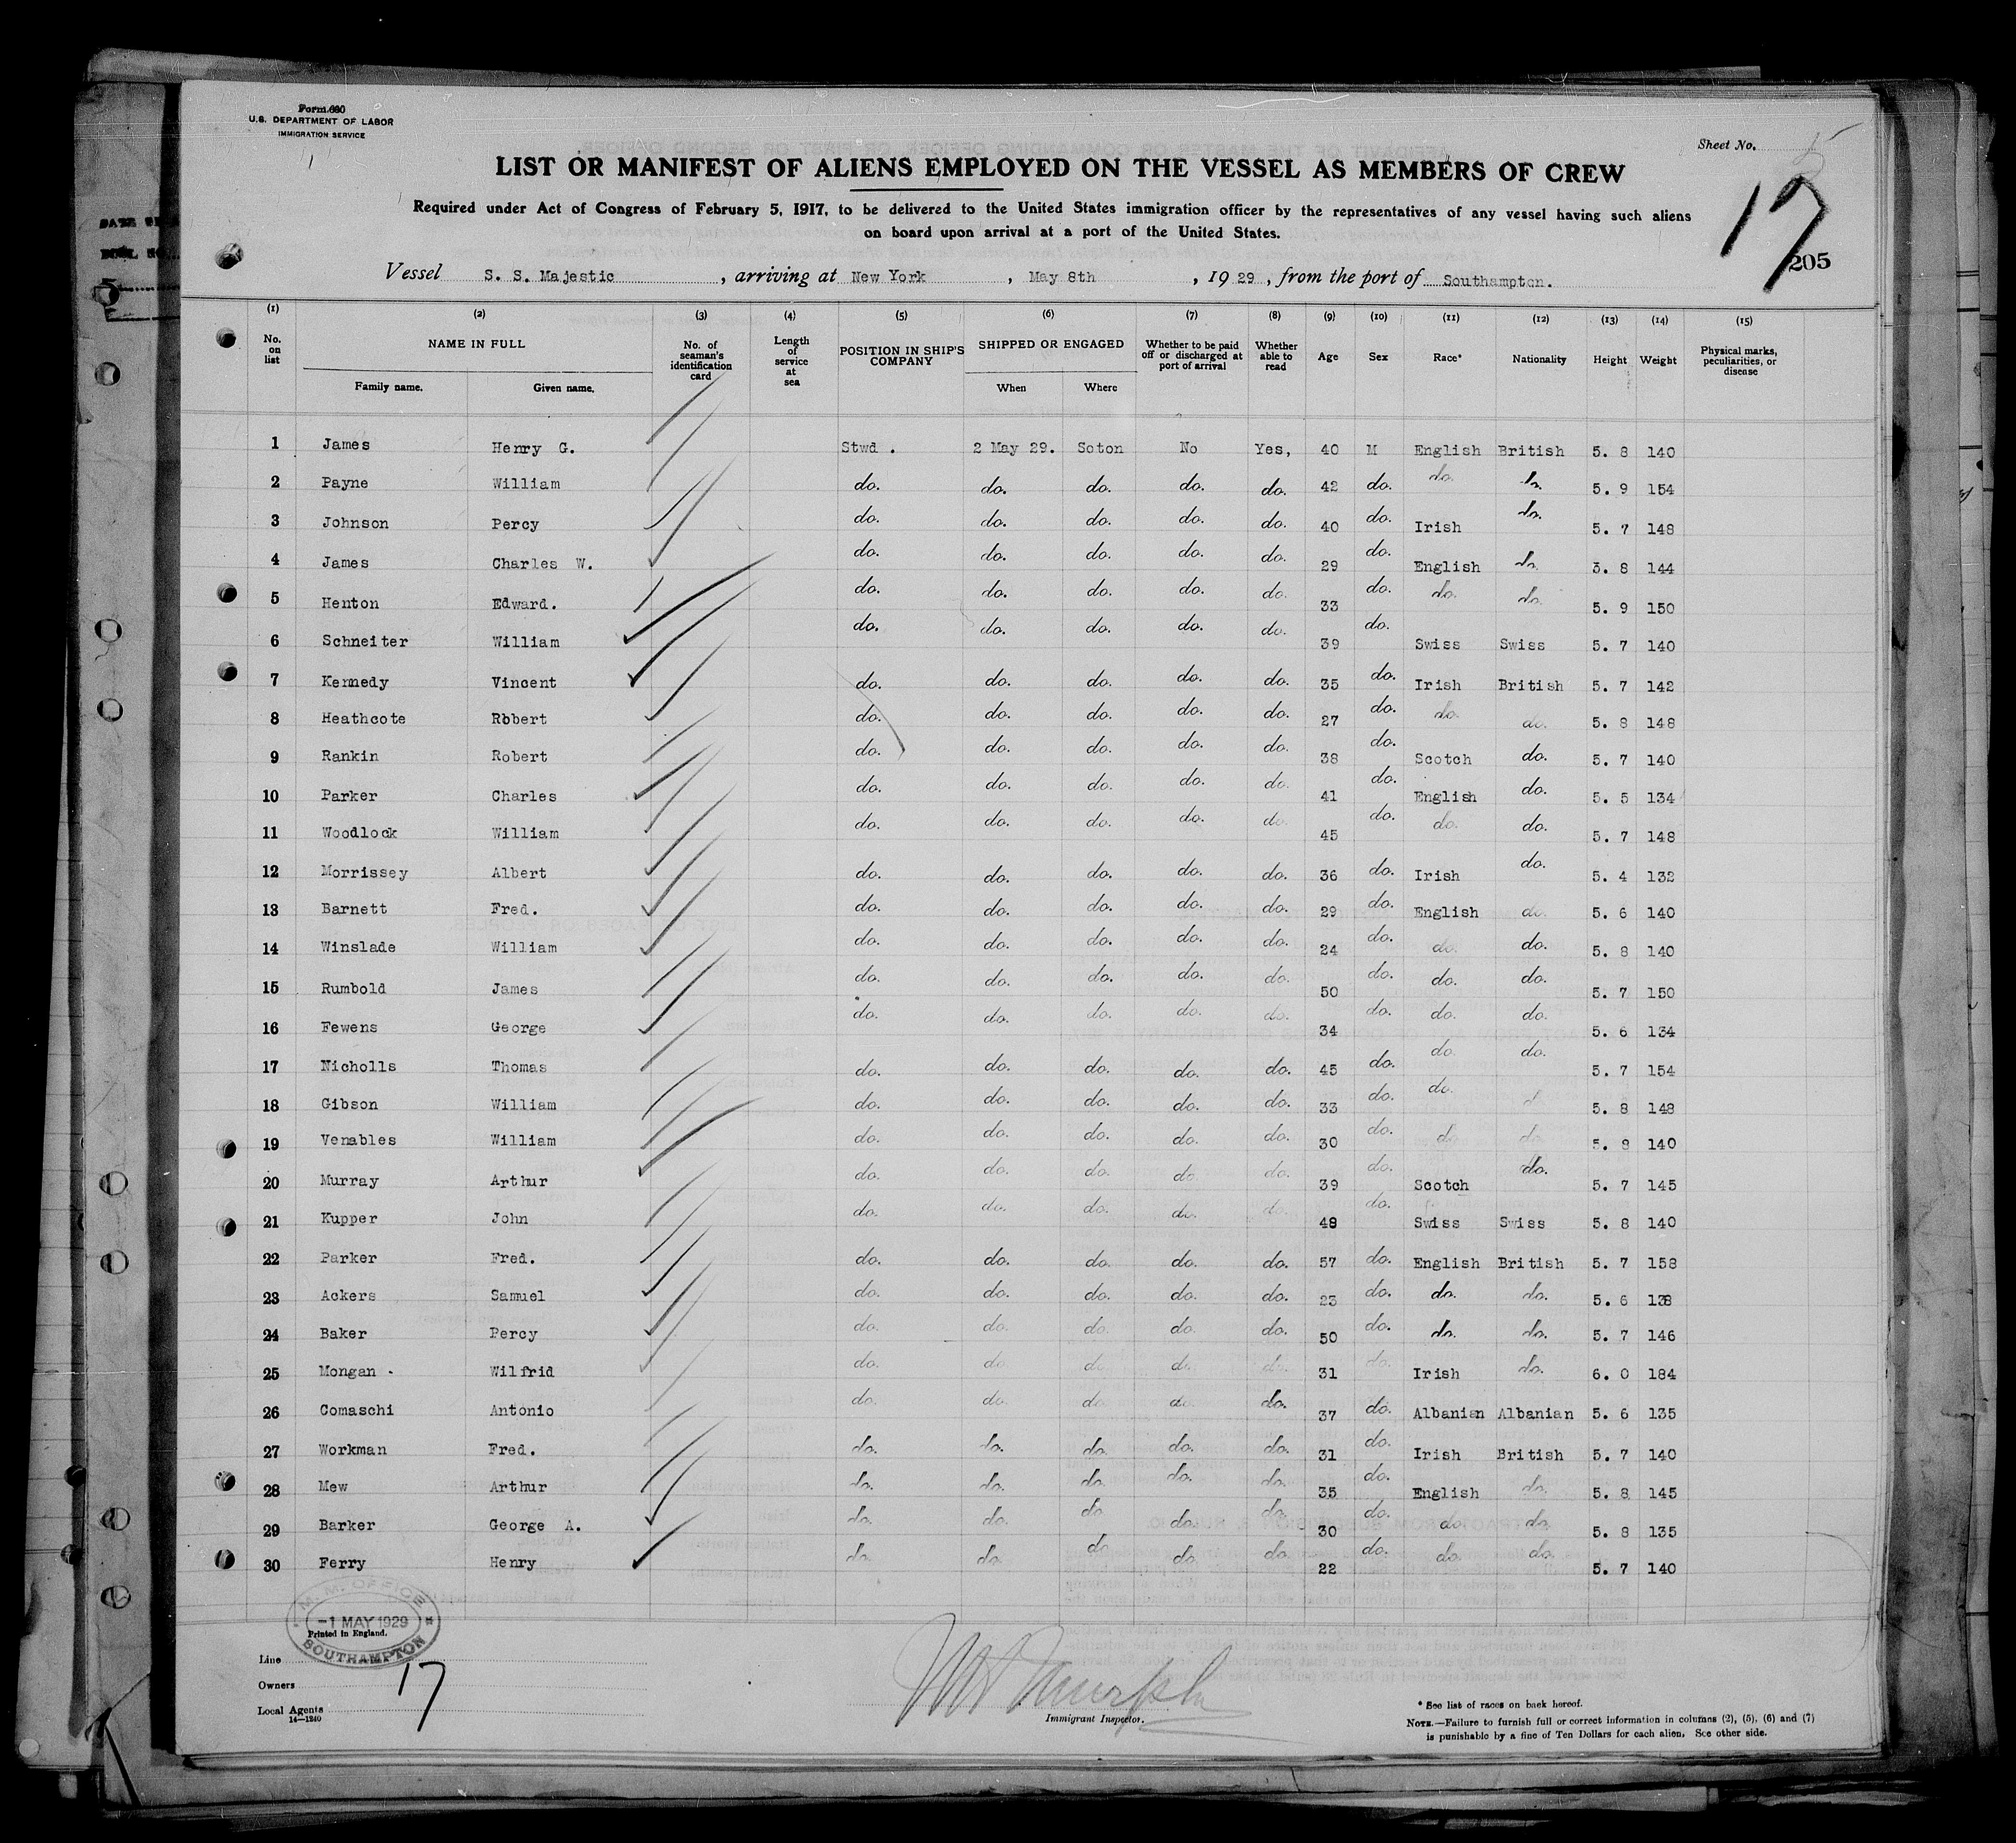 Form 680
U.S. DEPARTMENT OF LABOR
IMMIGRATION SERVICE
Sheet No. 5
LIST OR MANIFEST OF ALIENS EMPLOYED ON THE VESSEL AS MEMBERS OF CREW
Required under Act of Congress of February 5, 1917, to be delivered to the United States immigration officer by the representatives of any vessel having such aliens
on board upon arrival at a port of the United States.
17
205
Vessel S. S. Majestic , arriving at New York , May 8th , 19 29 , from the port of Southampton.
(1) (2) (3) (4) (5) (6) (7) (8) (9) (10) (11) (12) (13) (14) (15)
No. on list NAME IN FULL Family name. Given name. No. of seaman's identification card Length of service at sea POSITION IN SHIP'S COMPANY SHIPPED OR ENGAGED When Where Whether to be paid off or discharged at port of arrival Whether able to read Age Sex Race* Nationality Height Weight Physical marks, peculiarities, or disease
1 James Henry G. Stwd . 2 May 29. Soton No Yes, 40 M English British 5. 8 140
2 Payne William do. do. do. do. do. 42 do. do. do. 5. 9 154
3 Johnson Percy do. do. do. do. do. 40 do. Irish do. 5. 7 148
4 James Charles W. do. do. do. do. do. 29 do. English do. 5. 8 144
5 Henton Edward. do. do. do. do. do. 33 do. do. do. 5. 9 150
6 Schneiter William do. do. do. do. do. 39 do. Swiss Swiss 5. 7 140
7 Kennedy Vincent do. do. do. do. do. 35 do. Irish British 5. 7 142
8 Heathcote Robert do. do. do. do. do. 27 do. do. do. 5. 8 148
9 Rankin Robert do. do. do. do. do. 38 do. Scotch do. 5. 7 140
10 Parker Charles do. do. do. do. do. 41 do. English do. 5. 5 134
11 Woodlock William do. do. do. do. do. 45 do. do. do. 5. 7 148
12 Morrissey Albert do. do. do. do. do. 36 do. Irish do. 5. 4 132
13 Barnett Fred. do. do. do. do. do. 29 do. English do. 5. 6 140
14 Winslade William do. do. do. do. do. 24 do. do. do. 5. 8 140
15 Rumbold James do. do. do. do. do. 50 do. do. do. 5. 7 150
16 Fewens George do. do. do. do. do. 34 do. do. do. 5. 6 134
17 Nicholls Thomas do. do. do. do. do. 45 do. do. do. 5. 7 154
18 Gibson William do. do. do. do. do. 33 do. do. 5. 8 148
19 Venables William do. do. do. do. do. 30 do. do. do. 5. 9 140
20 Murray Arthur do. do. do. do. do. 39 do. Scotch do. 5. 7 145
21 Kupper John do. do. do. do. do. 48 do. Swiss Swiss 5. 8 140
22 Parker Fred. do. do. do. do. do. 57 do. English British 5. 7 158
23 Ackers Samuel do. do. do. do. do. 23 do. do. do. 5. 6 138
24 Baker Percy do. do. do. do. do. 50 do. do. do. 5. 7 146
25 Mongan . Wilfrid do. do. do. do. do. 31 do. Irish do. 6. 0 184
26 Comaschi Antonio do. do. do. do. do. 37 do. Albanian Albanian 5. 6 135
27 Workman Fred. do. do. do. do. do. 31 do. Irish British 5. 7 140
28 Mew Arthur do. do. do. do. do. 35 do. English do. 5. 8 145
29 Barker George A. do. do. do. do. do. 30 do. do. do. 5. 8 135
30 Ferry Henry do. do. do. do. do. 22 do. do. do. 5. 7 140
M.M. OFFICE
-1 MAY 1929
SOUTHAMPTON
Printed in England.
Line
Owners
Local Agents
14-1240
17
Murphy
Immigrant Inspector.
* See list of races on back hereof.
NOTE.—Failure to furnish full or correct information in columns (2), (5), (6) and (7)
is punishable by a fine of Ten Dollars for each alien. See other side.